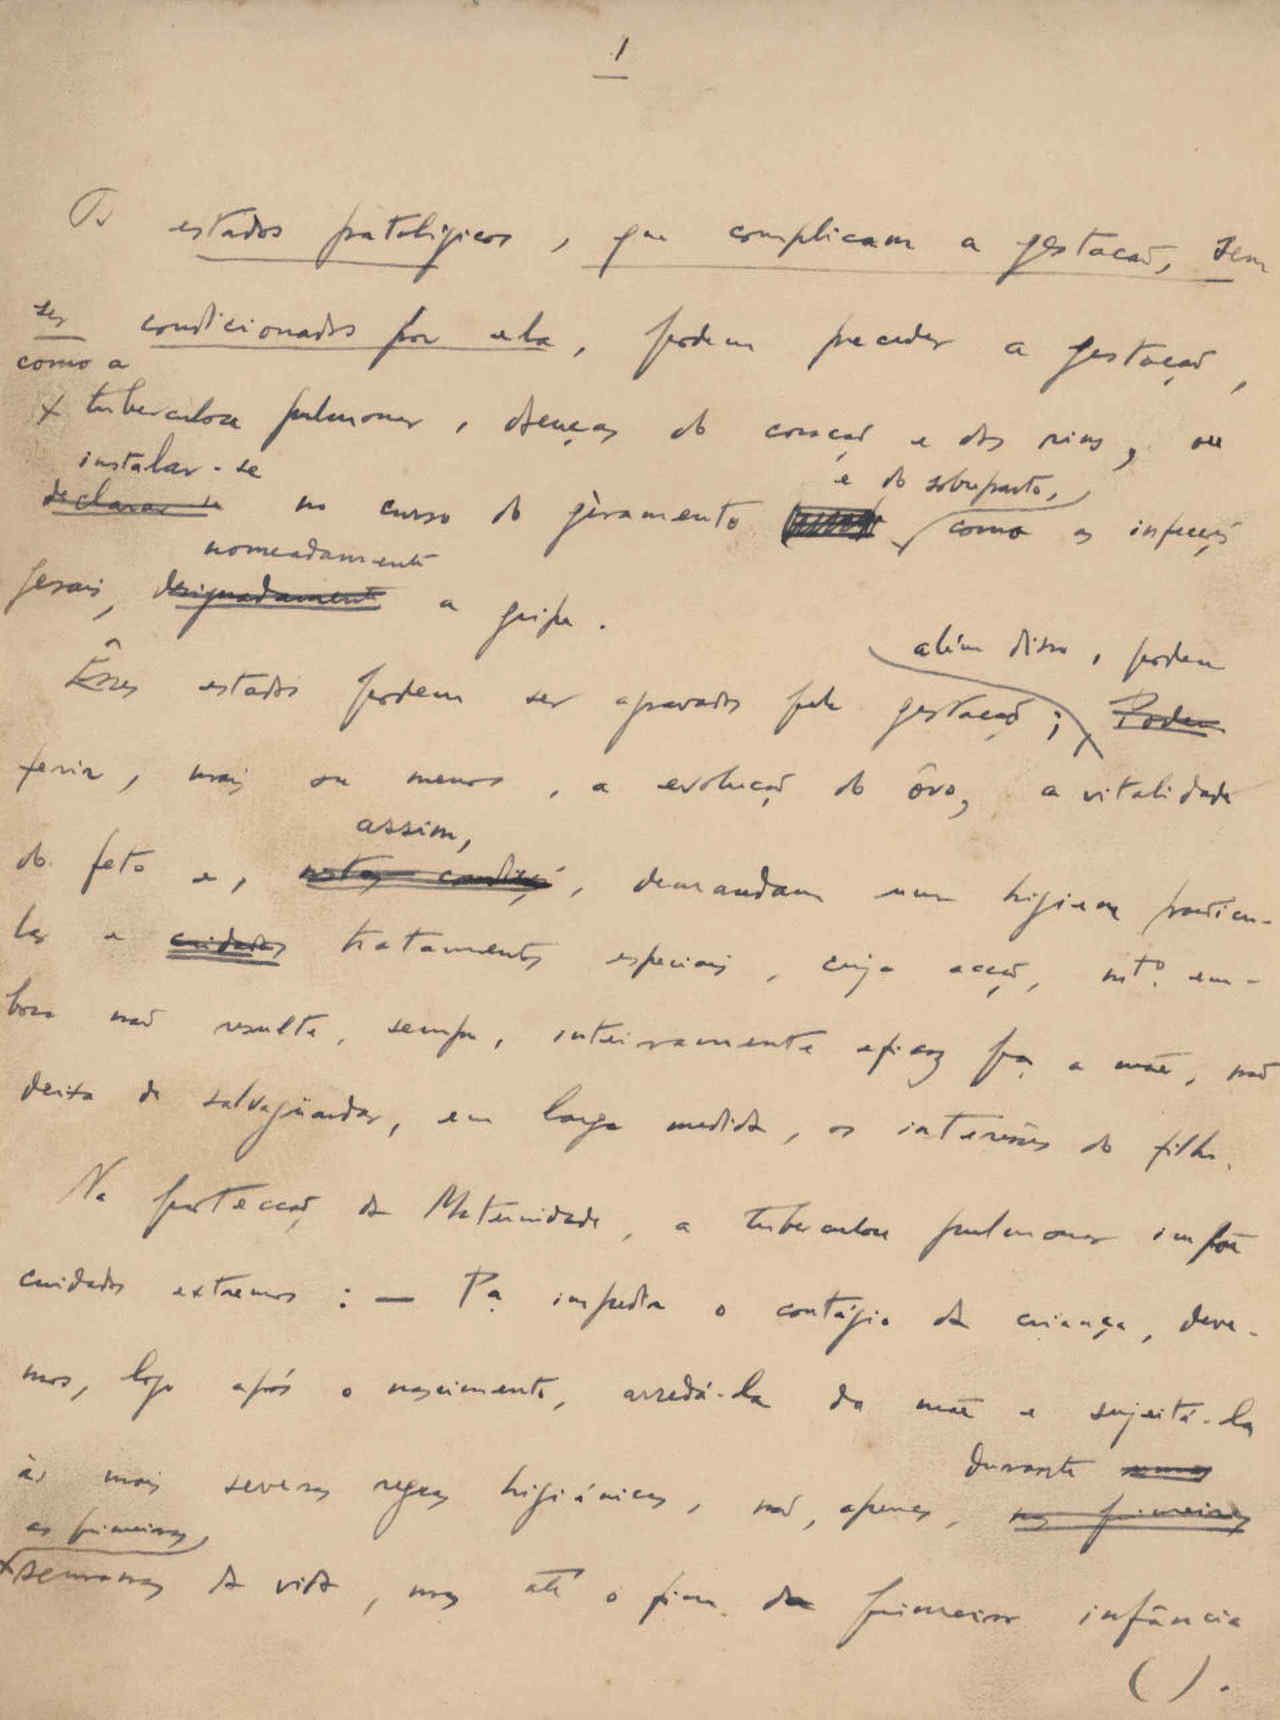 1
Os estados patológicos, que complicam a gestação, sem
ser condicionados por ela, podem preceder a gestação,
como a
x tuberculose pulmonar, doenças do coração e dos rins, ou
instalar-se
e do sobreparto,
declarar-se no curso do gèramento como as infecções
nomeadamente
gerais, designadamente a gripe.
além disso, podem
Êsses estados podem ser agravados pela gestação; Podem
ferir, mais ou menos, a evolução do ôvo, a vitalidade
assim,
do feto e, nestas condições, demandam uma higiene particu-
lar e cuidados tratamentos especiais, cuja acção, mto. em-
bora não resulte, sempre, inteiramente eficaz pa. a mãe, não
deixa de salvagüardar, em larga medida, os interêsses do filho.
Na protecção da Maternidade, a tuberculose pulmonar impõe
cuidados extremos: — Pa. impedir o contágio da criança, deve-
mos, logo após o nascimento, arredá-la da mãe e sujeitá-la
durante
às mais severas regras higiénicas, não, apenas, nas primeiras
as primeiras,
x semanas da vida, mas até o fim da primeira infância
( ).